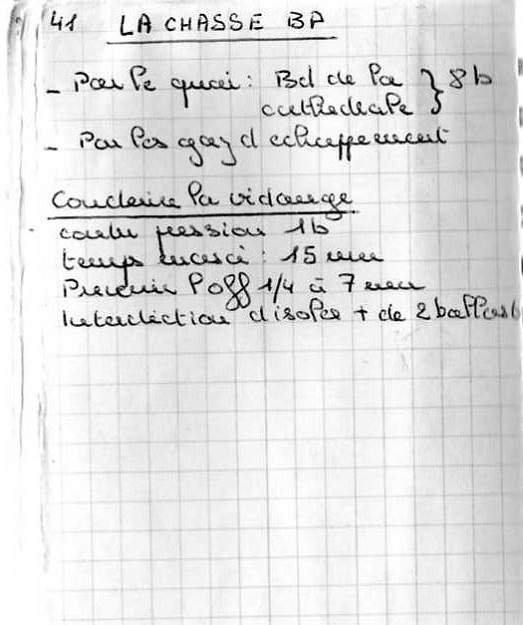 41 LA CHASSE BP
- Par le quai : Bd de la } 8b
cathedrale
- Par les gaz d echappement
Conduire la vidange
contre pression 1b
temps : 15 mn
Prevenir l'off 1/4 à 7 mn
Interdiction d isoler + de 2 ballasts